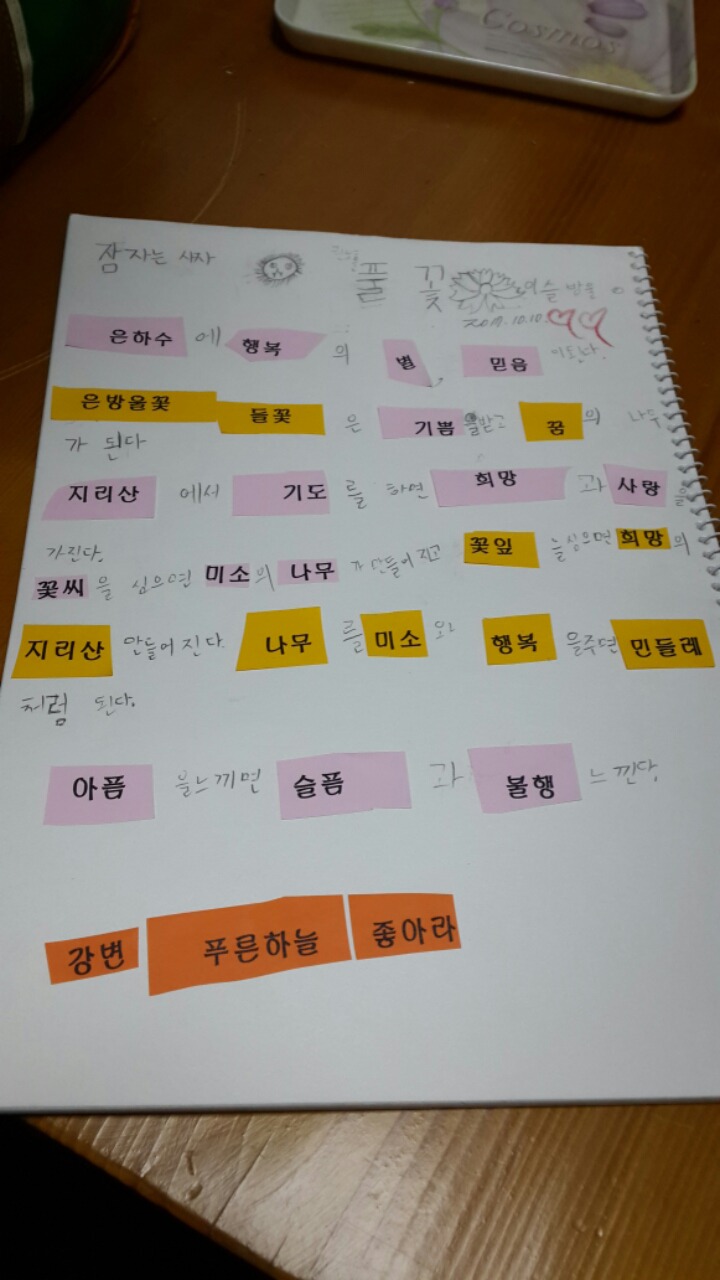 Cosmos
잠자는 사자 풀꽃 이슬 방울
2019.10.10.
은하수에 행복의 별 믿음이된다.
은방울꽃 들꽃은 기쁨을받고 꿈의 나무
가 된다
지리산에서 기도를 하면 희망과 사랑을
가진다.
꽃씨을 심으면 미소의 나무가 만들어 지고 꽃잎을심으면 희망의
지리산 만들어 진다. 나무를 미소와 행복을주면 민들레
처럼 된다.
아픔을느끼면 슬픔과 불행느낀다.
강변 푸른하늘 좋아라